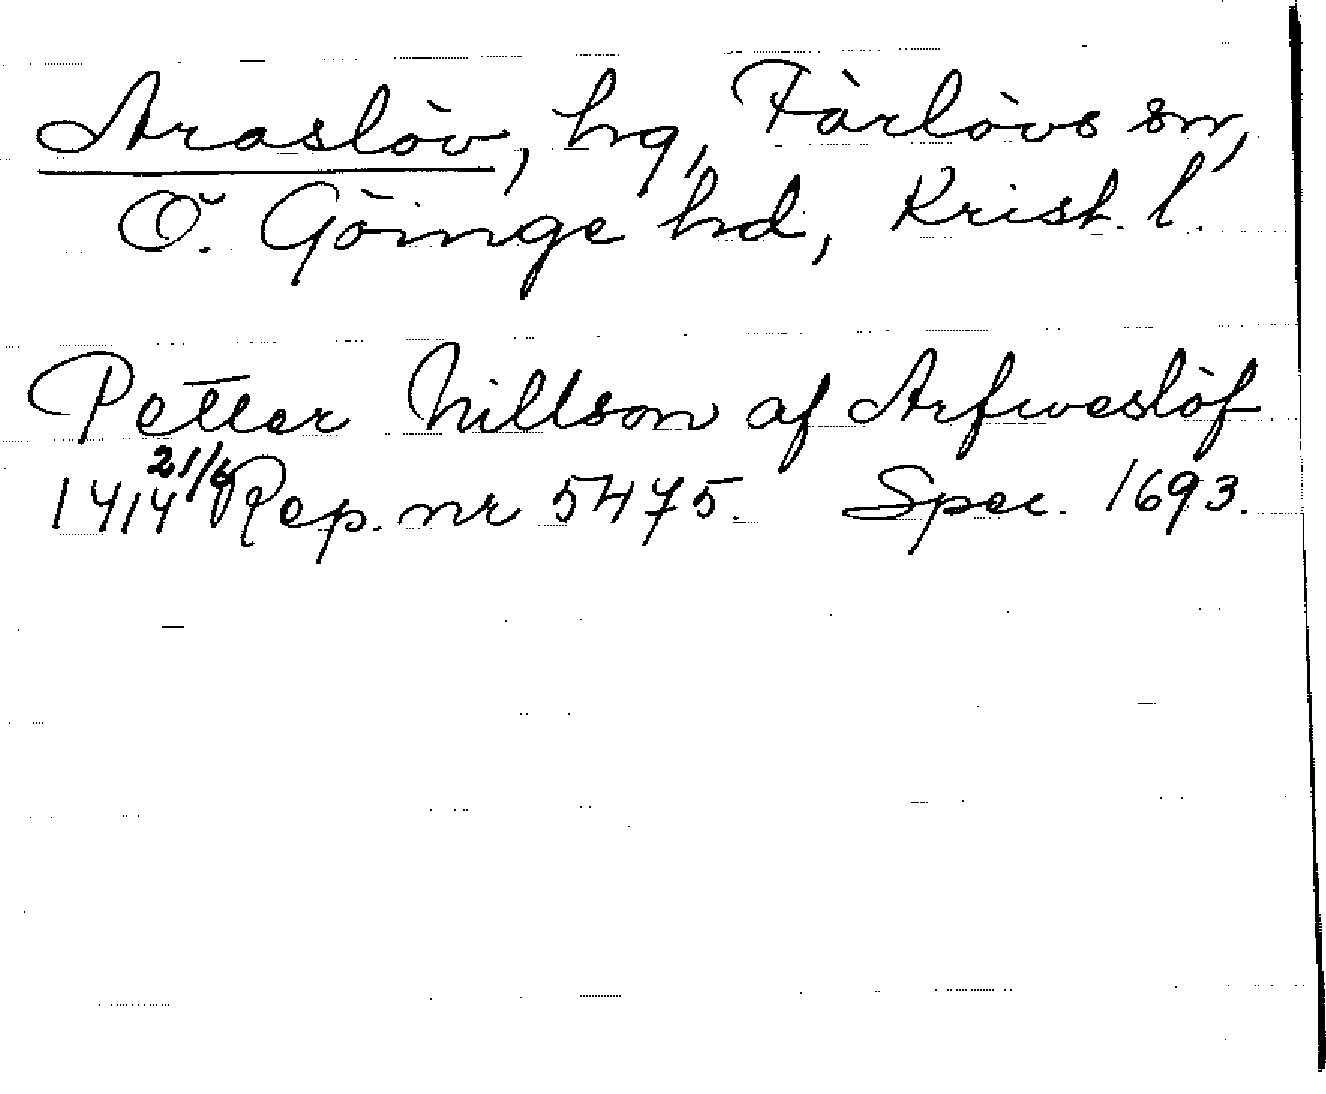 Araslöv, hg, Färlövs sn,
Ö. Göinge hd, Krist. l.
Petter Nillson af Arfweslöf
1414 21/6 Rep. nr 5475. Spec. 1693.